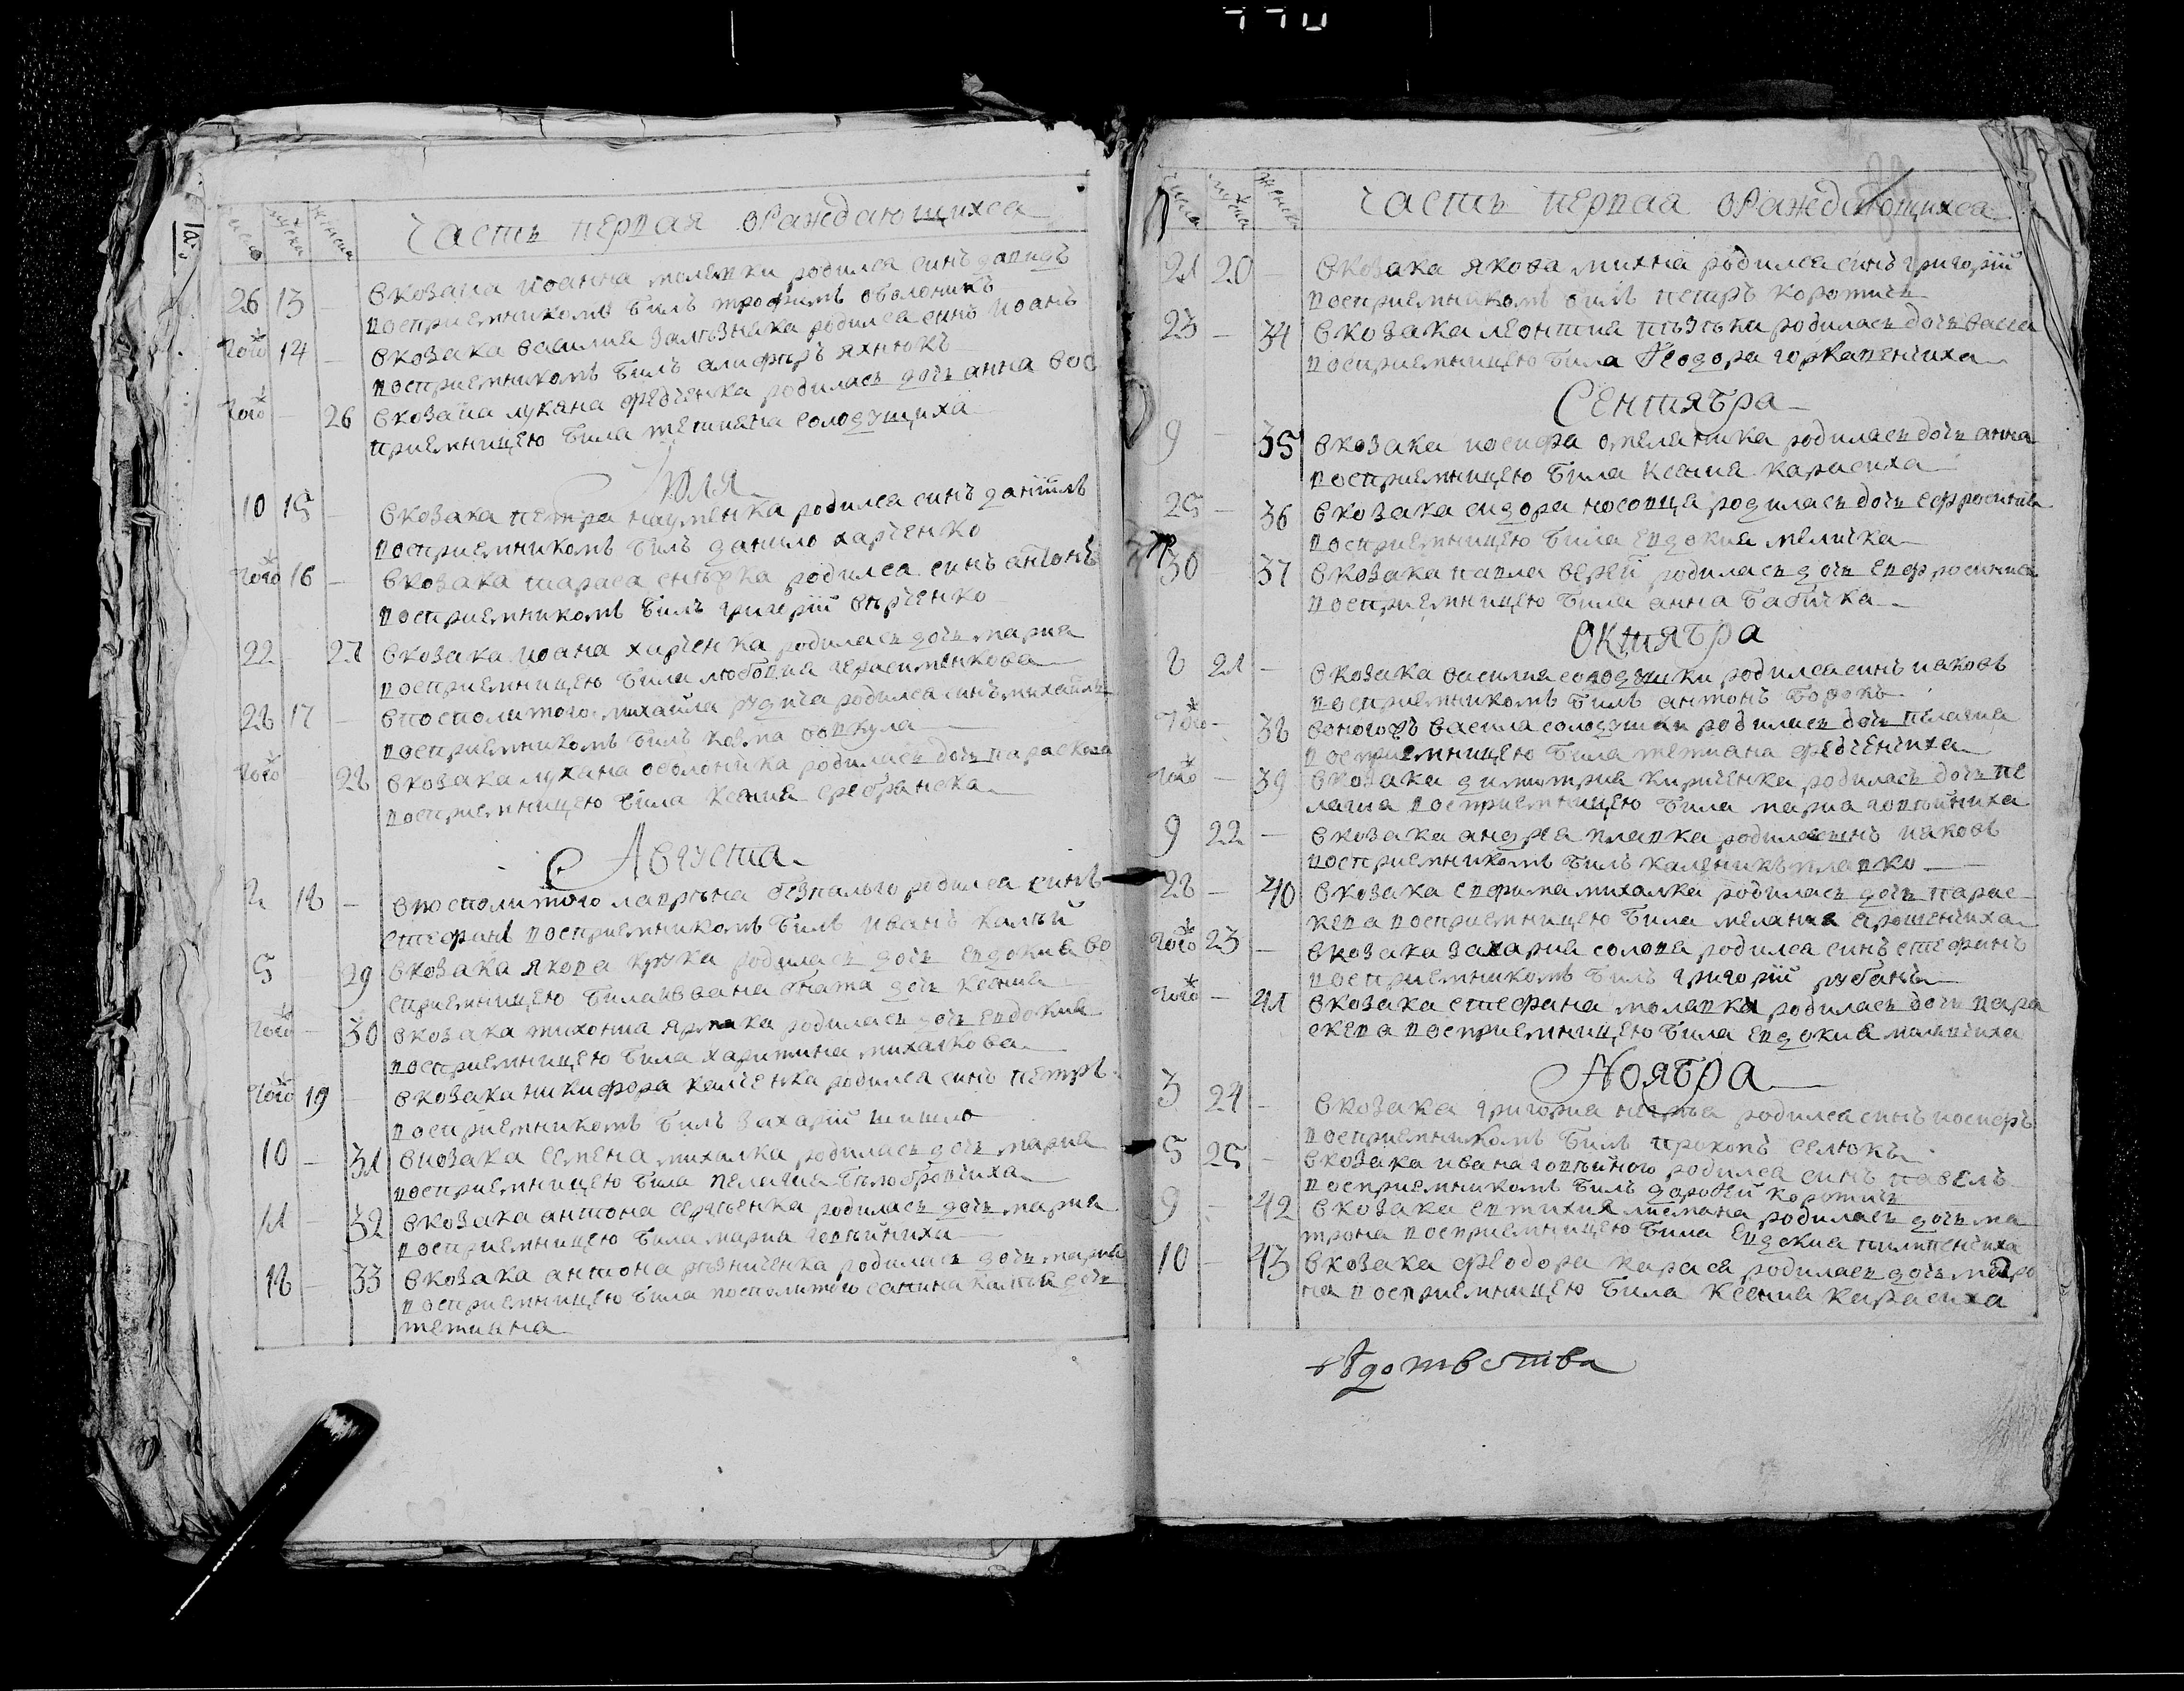 часть первая ѡ Раждающихса
числа мужска женска
26 13 — В козака Иоанна молявки родилса синъ давидъ
восприемникомъ билъ трофимъ оболоникъ
тогож 14 — В козака василия зализняка родилса синъ Иоанъ
восприемникомъ билъ алиферъ яхнюкъ
тогож — 26 В козака лукяна федченка родилась дочь анна вос
приемницею била тетияна солодушиха
Июля
10 15 — В козака петра науменка родилса синъ даніилъ
восприемникомъ билъ данило харченко
тогож 16 — В козака тараса снѣжка родилса синъ антонъ
восприемникомъ билъ григорій
22 27 В козака иоана хирченка родилась дочь мариа
восприемницею била любовиа герасименкова
28 17 — В посполитого михайла рудича родилса синъ михайлъ
восприемникомъ билъ козма вовкула
тогож 28 В козака лукана оболоника родилась дочь параскева
восприемницею била Ксениа сребранска
Августа
2 18 — В посполитого лаврѣна безпалого родилса синъ
стефанъ восприемникомъ билъ иванъ калый
5 29 В козака якова крука родилась дочь евдокиа во
сприемницею била ивана гната дочь ксениа
тогож — 30 В козака тихониа ярмака родилась дочь евдокиа
восприемницею била харитина михалкова
тогож 19 — В козака никифора калченка родилса синъ петръ
восприемникомъ билъ захарій шишло
10 — 31 В козака семена михалка родилась дочь мариа
восприемницею била пелагиа билобровчиха
11 — 32 В козака антона сергѣенка родилась дочь мариа
восприемницею била мариа гопѣйниха
18 — 33 В козака антона рѣзниченка родилась дочь мариа
восприемницею била посполитого дочь
тетиана
часть первая ѡ Раждающихса
числа мужска женска
21 20 — В козака якова михна родилса синъ григорій
восприемникомъ билъ петръ коротичъ
23 — 34 В козака леонтиа родилась дочь васса
восприемницею била Феодора горкавенчиха
Сентября
9 35 В козака иосифа омеляника родилась дочь анна
восприемницею била Ксения карасиха
25 — 36 В козака сидора носовца родилась дочь ефросиниа
восприемницею била евдокиа меличка
30 — 37 В козака павла верей родилась дочь евфросиниа
восприемницею била анна бабичка
Октября
8 21 — В козака василиа солодушки родилса синъ иаковъ
восприемникомъ билъ антонъ
тогож — 38 В оногожъ васила солодушки родилась дочь пелагиа
восприемницею била тетиана федченчиха
тогож — 39 В козака димитриа кириченка родилась дочь пе
лагиа восприемницею била мариа гопѣйниха
9 22 — В козака андреа плавка родилса синъ иаковъ
восприемникомъ билъ каленикъ плавко
28 — 40 В козака ефима михалка родилась дочь парас
кева восприемницею била меланиа ярошенчиха
тогож 23 — В козака захариа солопа родилса синъ стефанъ
восприемникомъ билъ григорій рубанъ
тогож — 41 В козака стефана молявки родилась дочь пара
скева восприемницею била евдокиа
Ноября
3 24 — В козака григориа родилса синъ иосифъ
восприемникомъ билъ прокопъ селюкъ
5 25 — В козака ивана гопѣйного родилса синъ павелъ
восприемникомъ билъ дорофей коротичъ
9 — 42 В козака евтихиа лисмана родилась дочь ма
трона восприемницею била евдокиа пилипенчиха
10 — 43 В козака феодора карася родилась дочь матро
на восприемницею била Ксениа карасиха